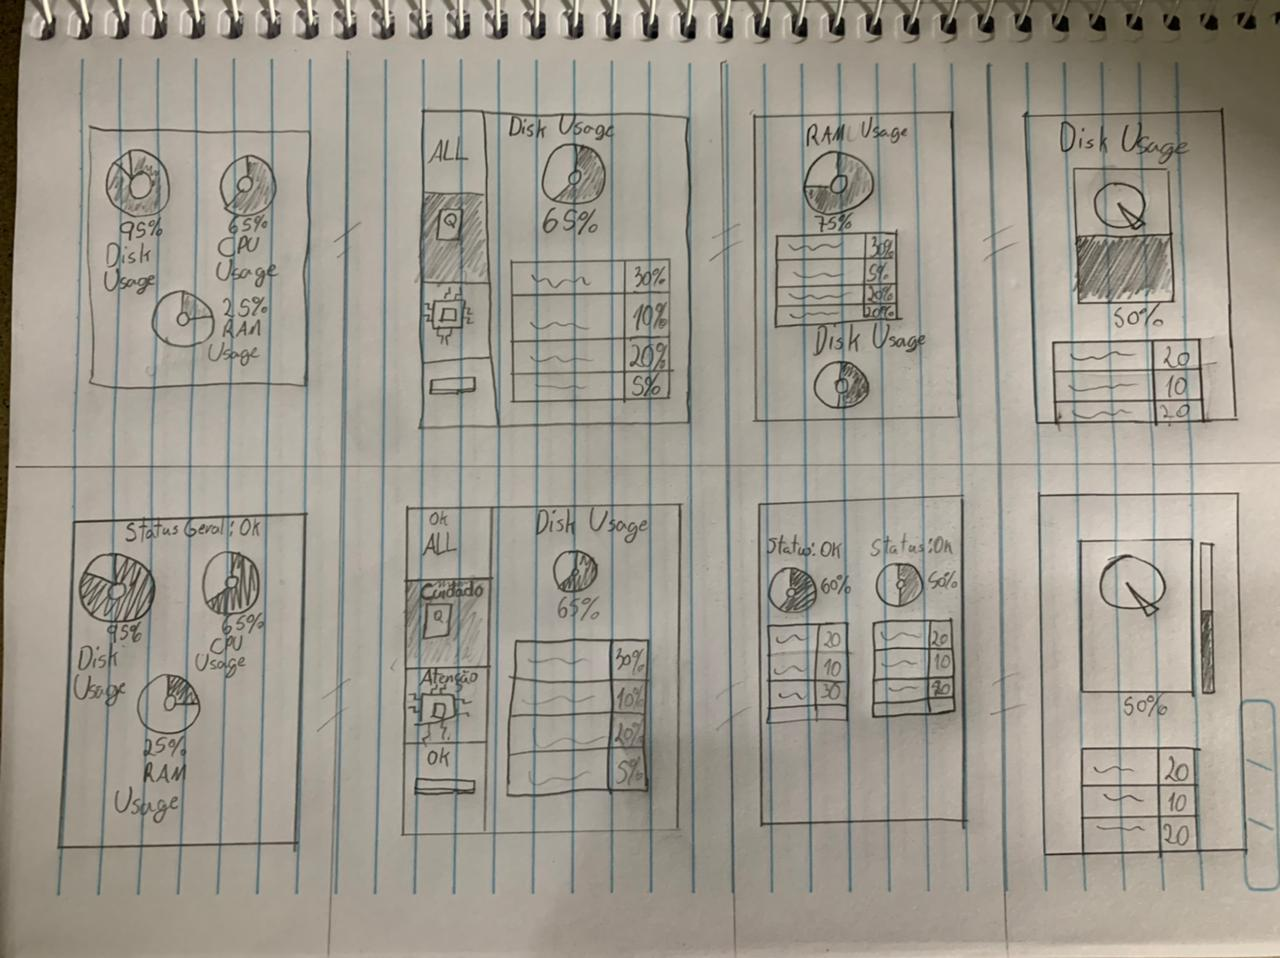 95%
Disk
Usage
65%
CPU
Usage
25%
RAM
Usage
ALL
Q
Disk Usage
65%
30%
10%
20%
5%
RAM Usage
75%
30%
5%
20%
20%
Disk Usage
Disk Usage
50%
20
10
20
Status Geral: OK
95%
Disk
Usage
65%
CPU
Usage
25%
RAM
Usage
OK
ALL
Cuidado
Q
Atenção
OK
Disk Usage
65%
30%
10%
20%
5%
Status: OK
60%
20
10
30
Status: OK
50%
20
10
20
50%
20
10
20